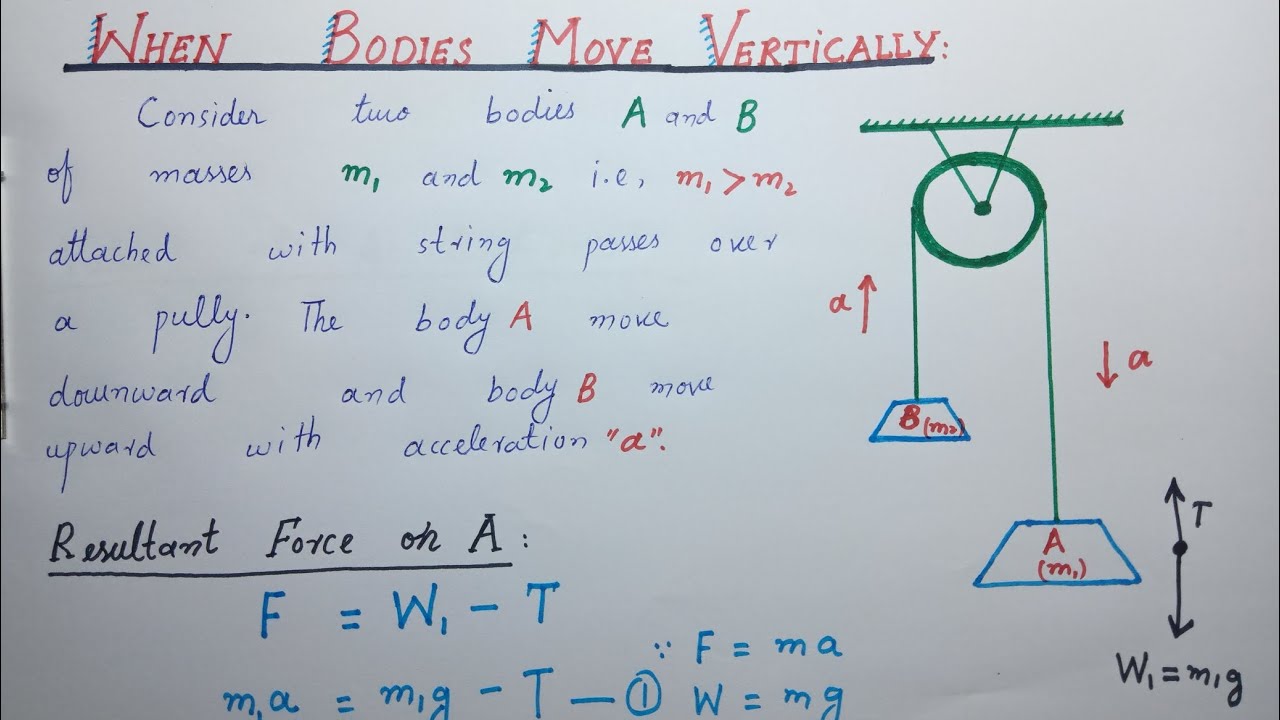 WHEN BODIES MOVE VERTICALLY:
Consider two bodies A and B
of masses m₁ and m₂ i.e, m₁ > m₂
attached with string passes over
a pully. The body A move
downward and body B move
upward with acceleration "a".
Resultant Force on A :
F = W₁ - T
∵ F = ma
m₁a = m₁g - T — ①
W = mg
a
a
B (m₂)
A
(m₁)
T
W₁ = m₁g